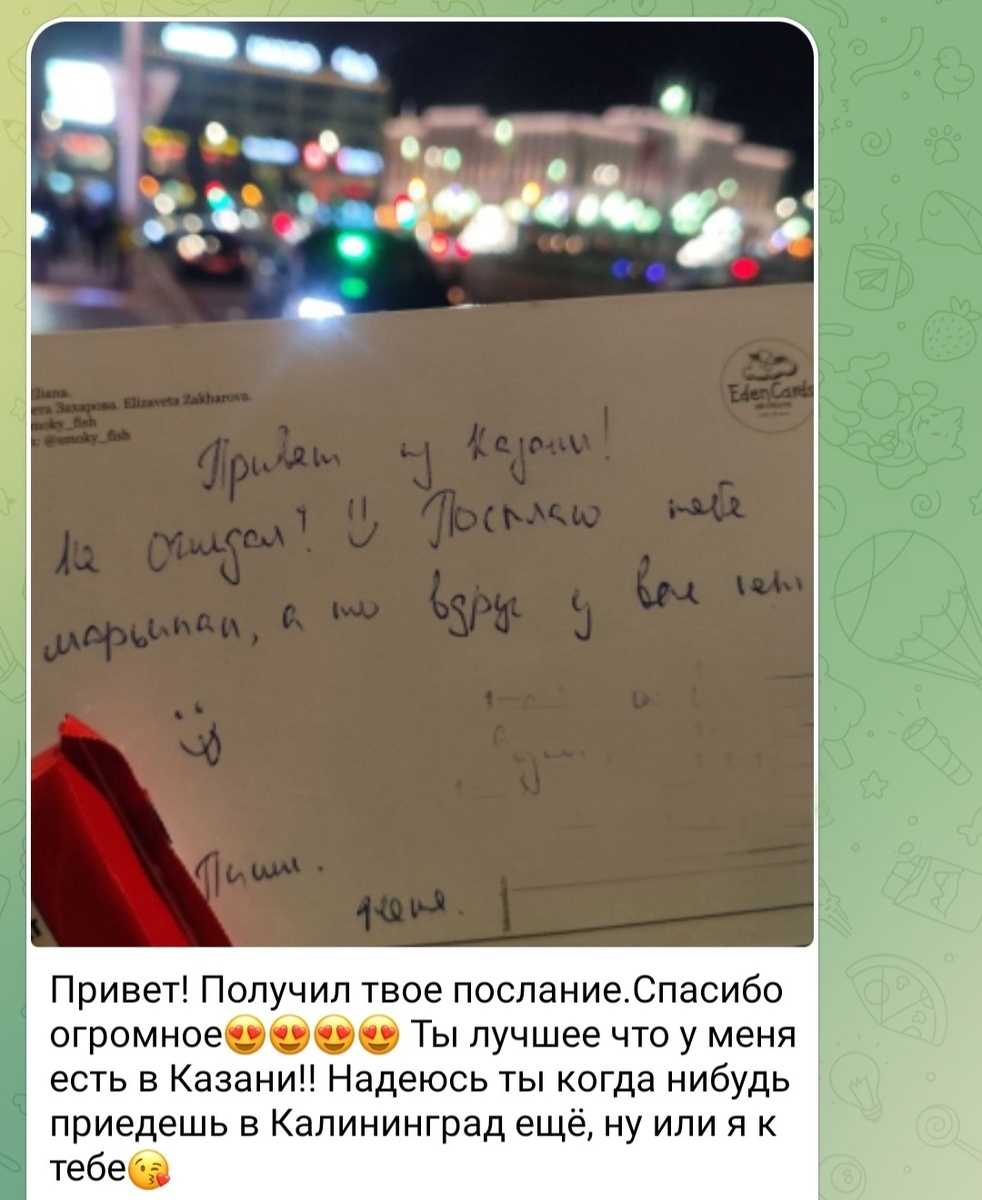 Eliana.
ета Захарова. Elizaveta Zakharova.
moky_fish
: @smoky_fish
EdenCards
Привет из Казани!
Не ожидал? Посылаю тебе
марципан, а то вдруг у вас нет
Пиши.
Женя.
Привет! Получил твое послание.Спасибо
огромное😍😍😍😍 Ты лучшее что у меня
есть в Казани!! Надеюсь ты когда нибудь
приедешь в Калининград ещё, ну или я к
тебе😘